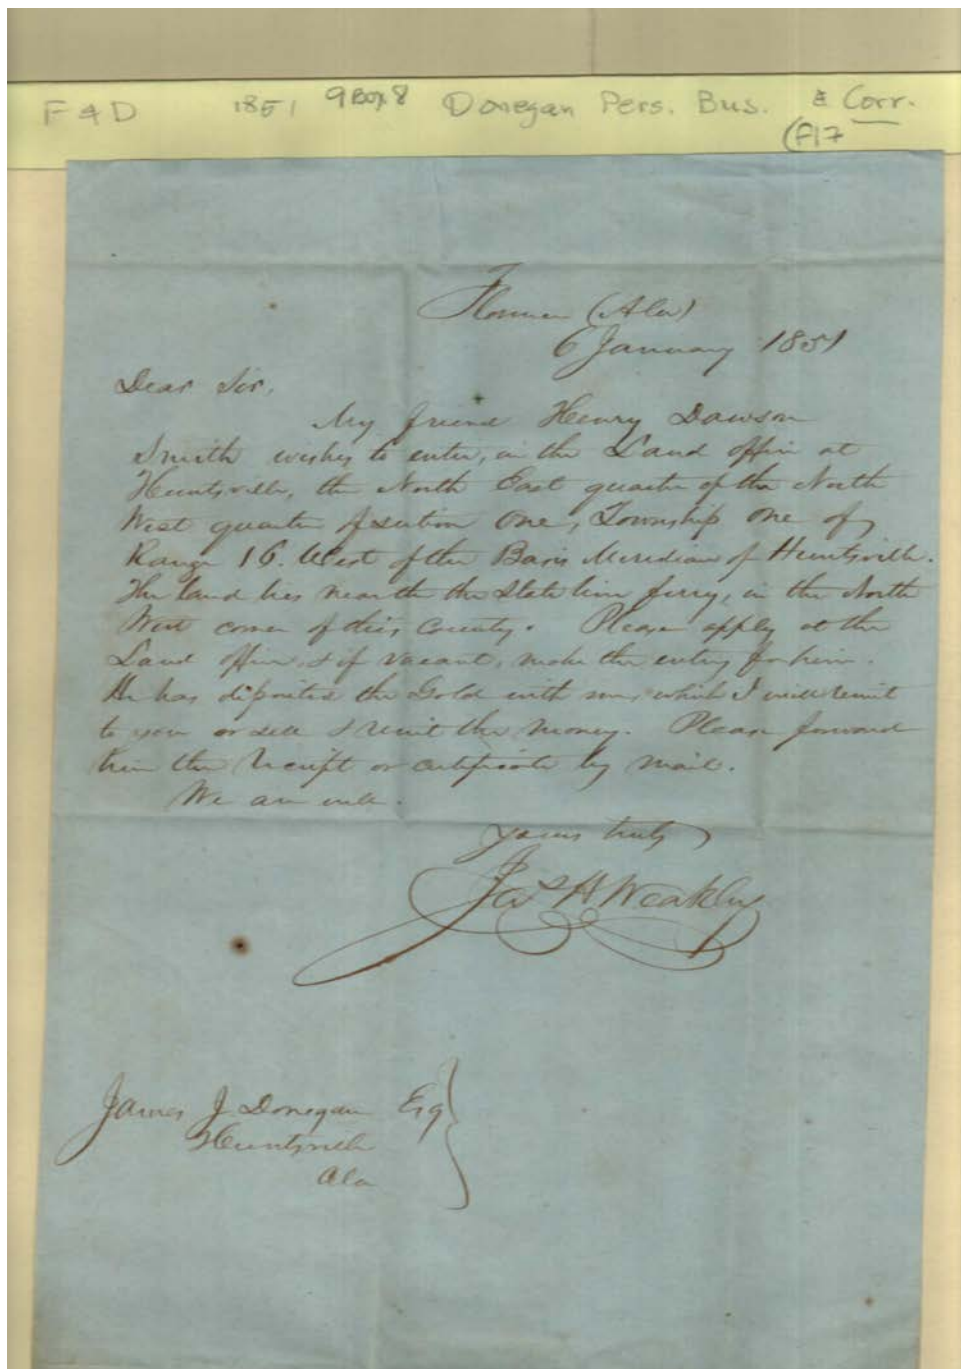 F & D 1851 9 Box 8 Donegan Pers. Bus. & Corr.
(F17
Florence (Ala)
6 January 1851
Dear Sir,
My friend Henry Dawson
Smith wishes to enter, in the Land office at
Huntsville, the North East quarter of the North
West quarter of section One, Township one of
Range 16. West of the Basis Meridian of Huntsville.
The land lies near the the State line ferry, in the North
West corner of this County. Please apply at the
Land office, & if vacant, make the entry for him.
He has deposited the Gold with me, which I will remit
to you or sell & remit the money. Please forward
him the receipt or certificate by mail.
We are well.
Yours truly
Jas H Weakley
James J Donegan Esq
Huntsville
Ala